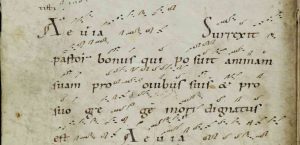 A e uia Surrexit
pastor bonus qui po suit animam
suam pro ouibus suis & pro
suo gre ge mori dignatus
est A e uia